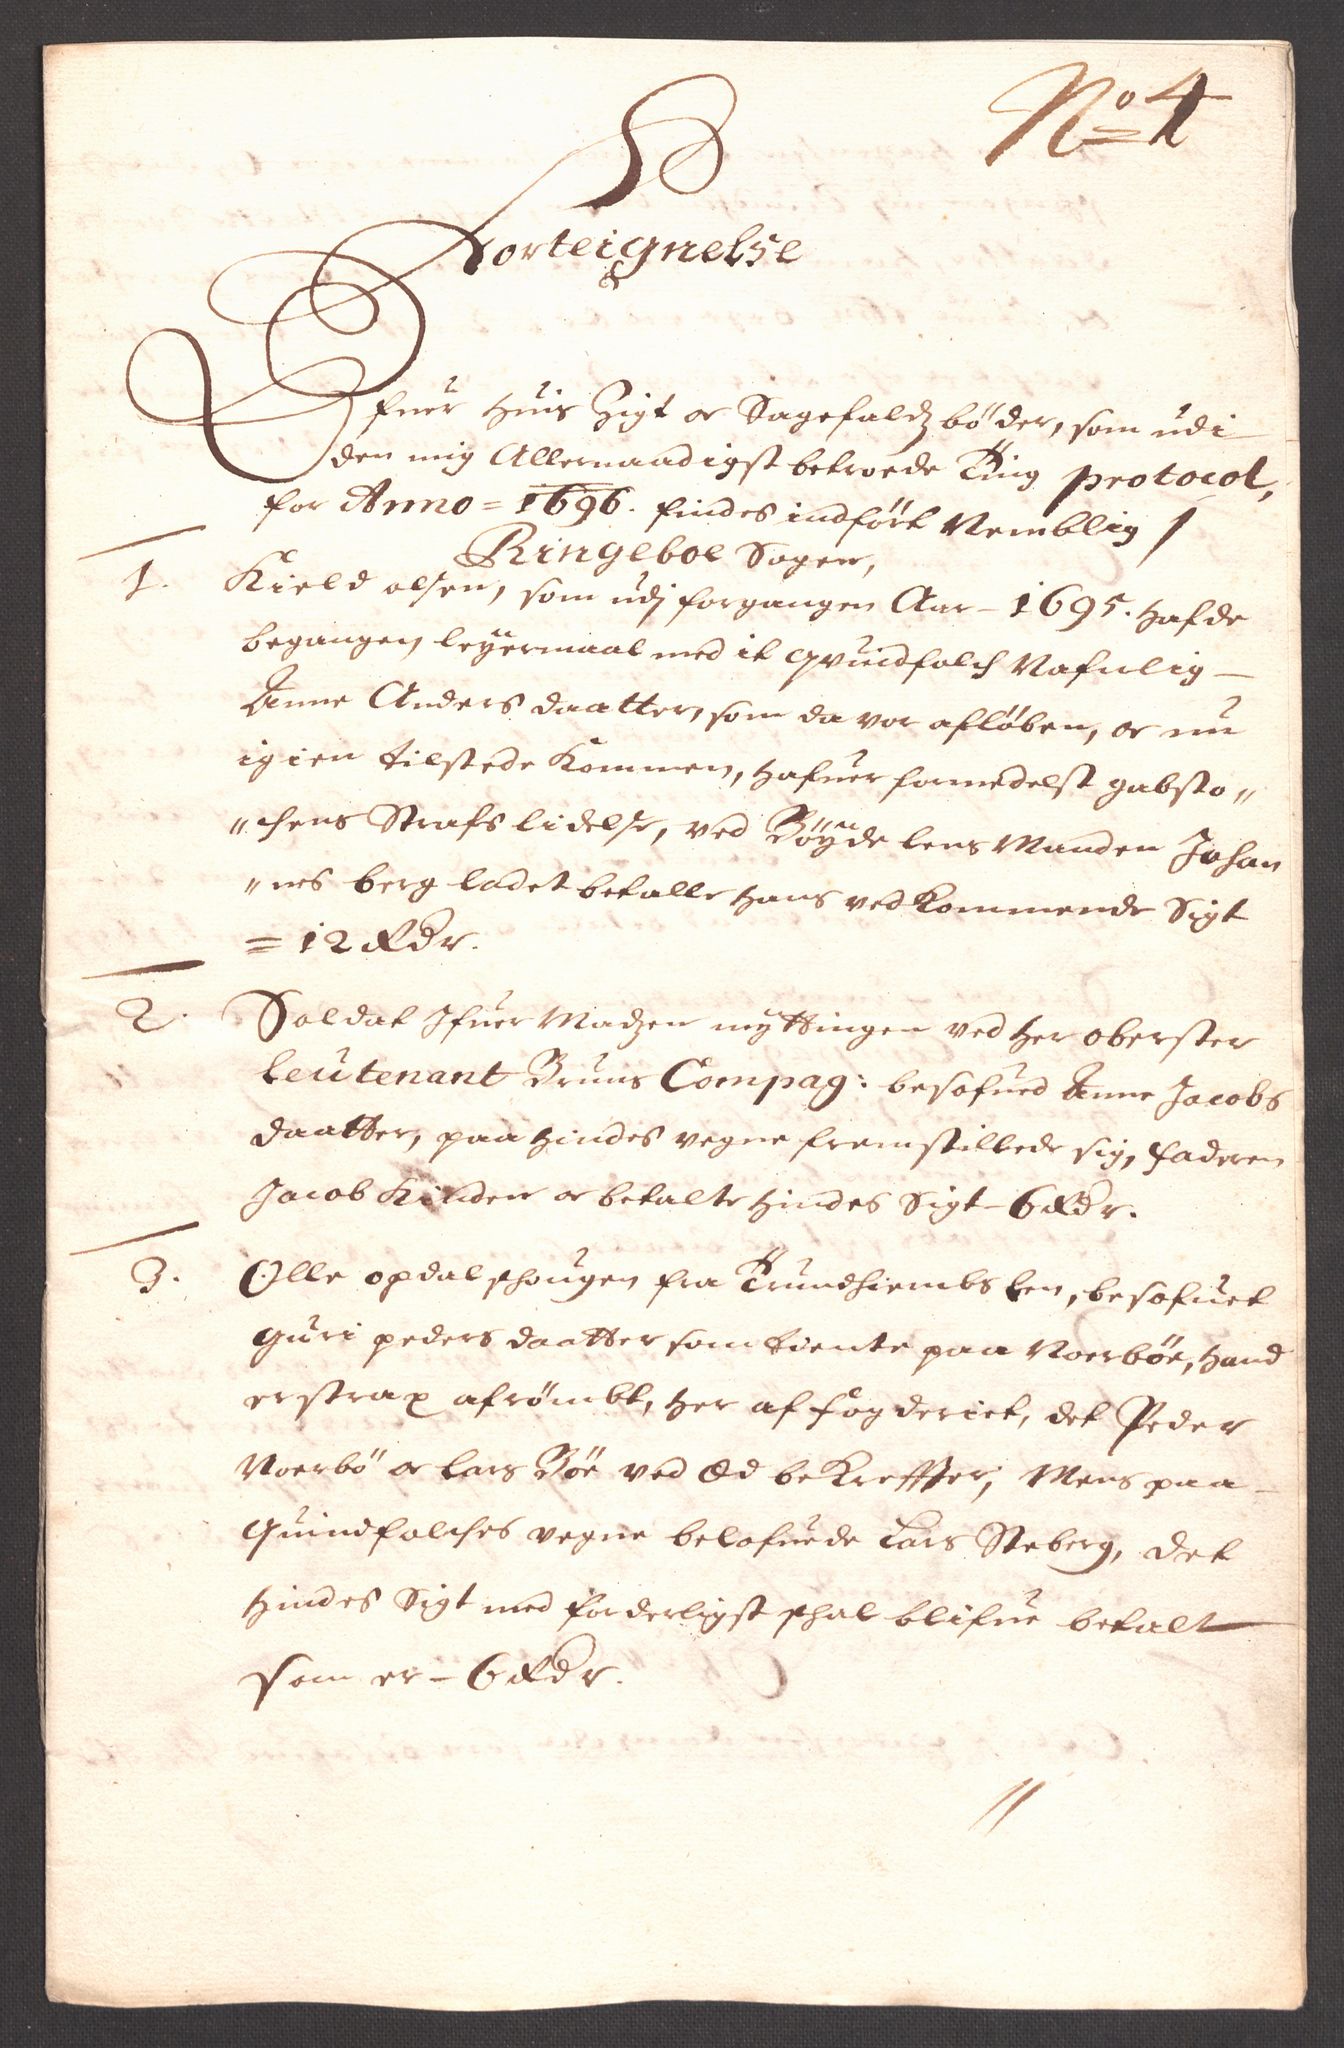 No 4
Forteignelse
Ofuer Huis Sigt oc Sagefaldz bøder, som udi
den mig Allernaadigst betroede Ting protocol,
for Anno = 1696. findes indført Nemblig /
Ringeboe Sogen,
1. Kield olsen, som udj forgangen Aar - 1695. hafde
begangen leyermaal med it qvindfolch Nafnlig -
Anne Anders daatter, som da var afløben, oc nu
igien tilstede kommen, hafuer formedelst gabsto"
"chens Strafs lidelse, ved Bøyde lens Manden Johan
"nes berg ladet betalle hans ved kommende Sigt
= 12 Rdr.
2. Soldat Ifuer Madzen myttingen ved Her oberster
leutenant Bruns Compag: besofued Anne Jacobs
daatter, paa hindes vegne fremstillede sig, faderen
Jacob Kinden oc betalte hindes Sigt - 6 Rdr.
3. Olle opdalshougen fra Trundhiembs len, besofuet
Guri peders daatter som tiente paa Noerbøe, hand
er strax afrømbt, her af fogderiet, det Peder
Noerbø oc Lars Bøe ved Æd bekreffter, Mens paa -
Quindfolches vegne belofuede Lars Steberg, det
hindes Sigt med forderligst schal blifue betalt
som er - 6 Rdr.
//